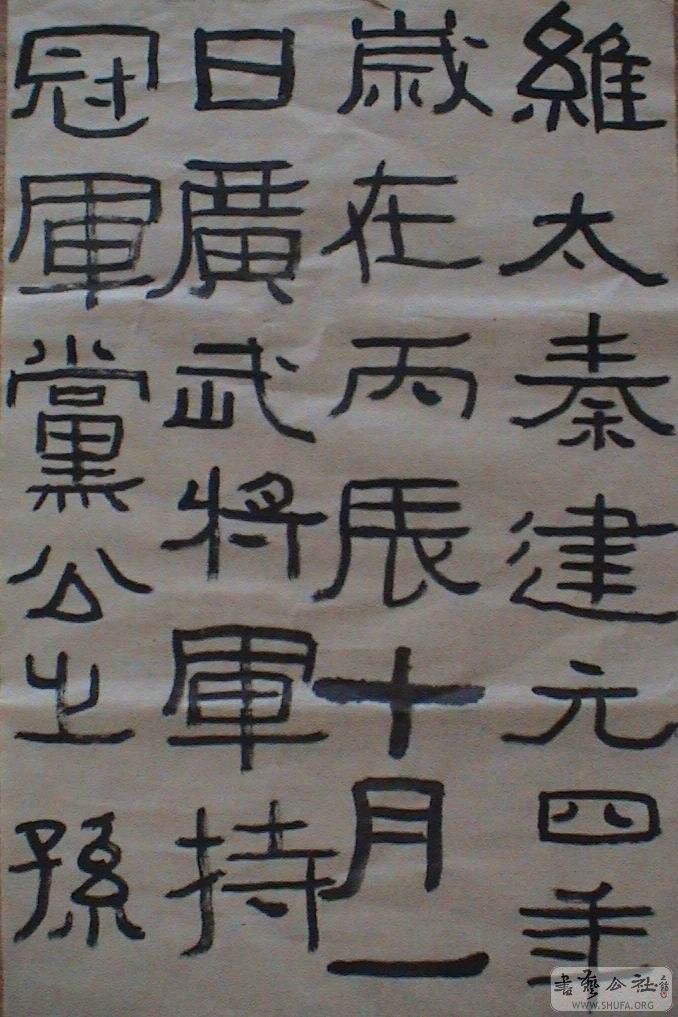 維太秦建元四年
歲在丙辰十月一
日廣武將軍持
冠軍黨公之孫
書藝公社
WWW.SHUFA.ORG